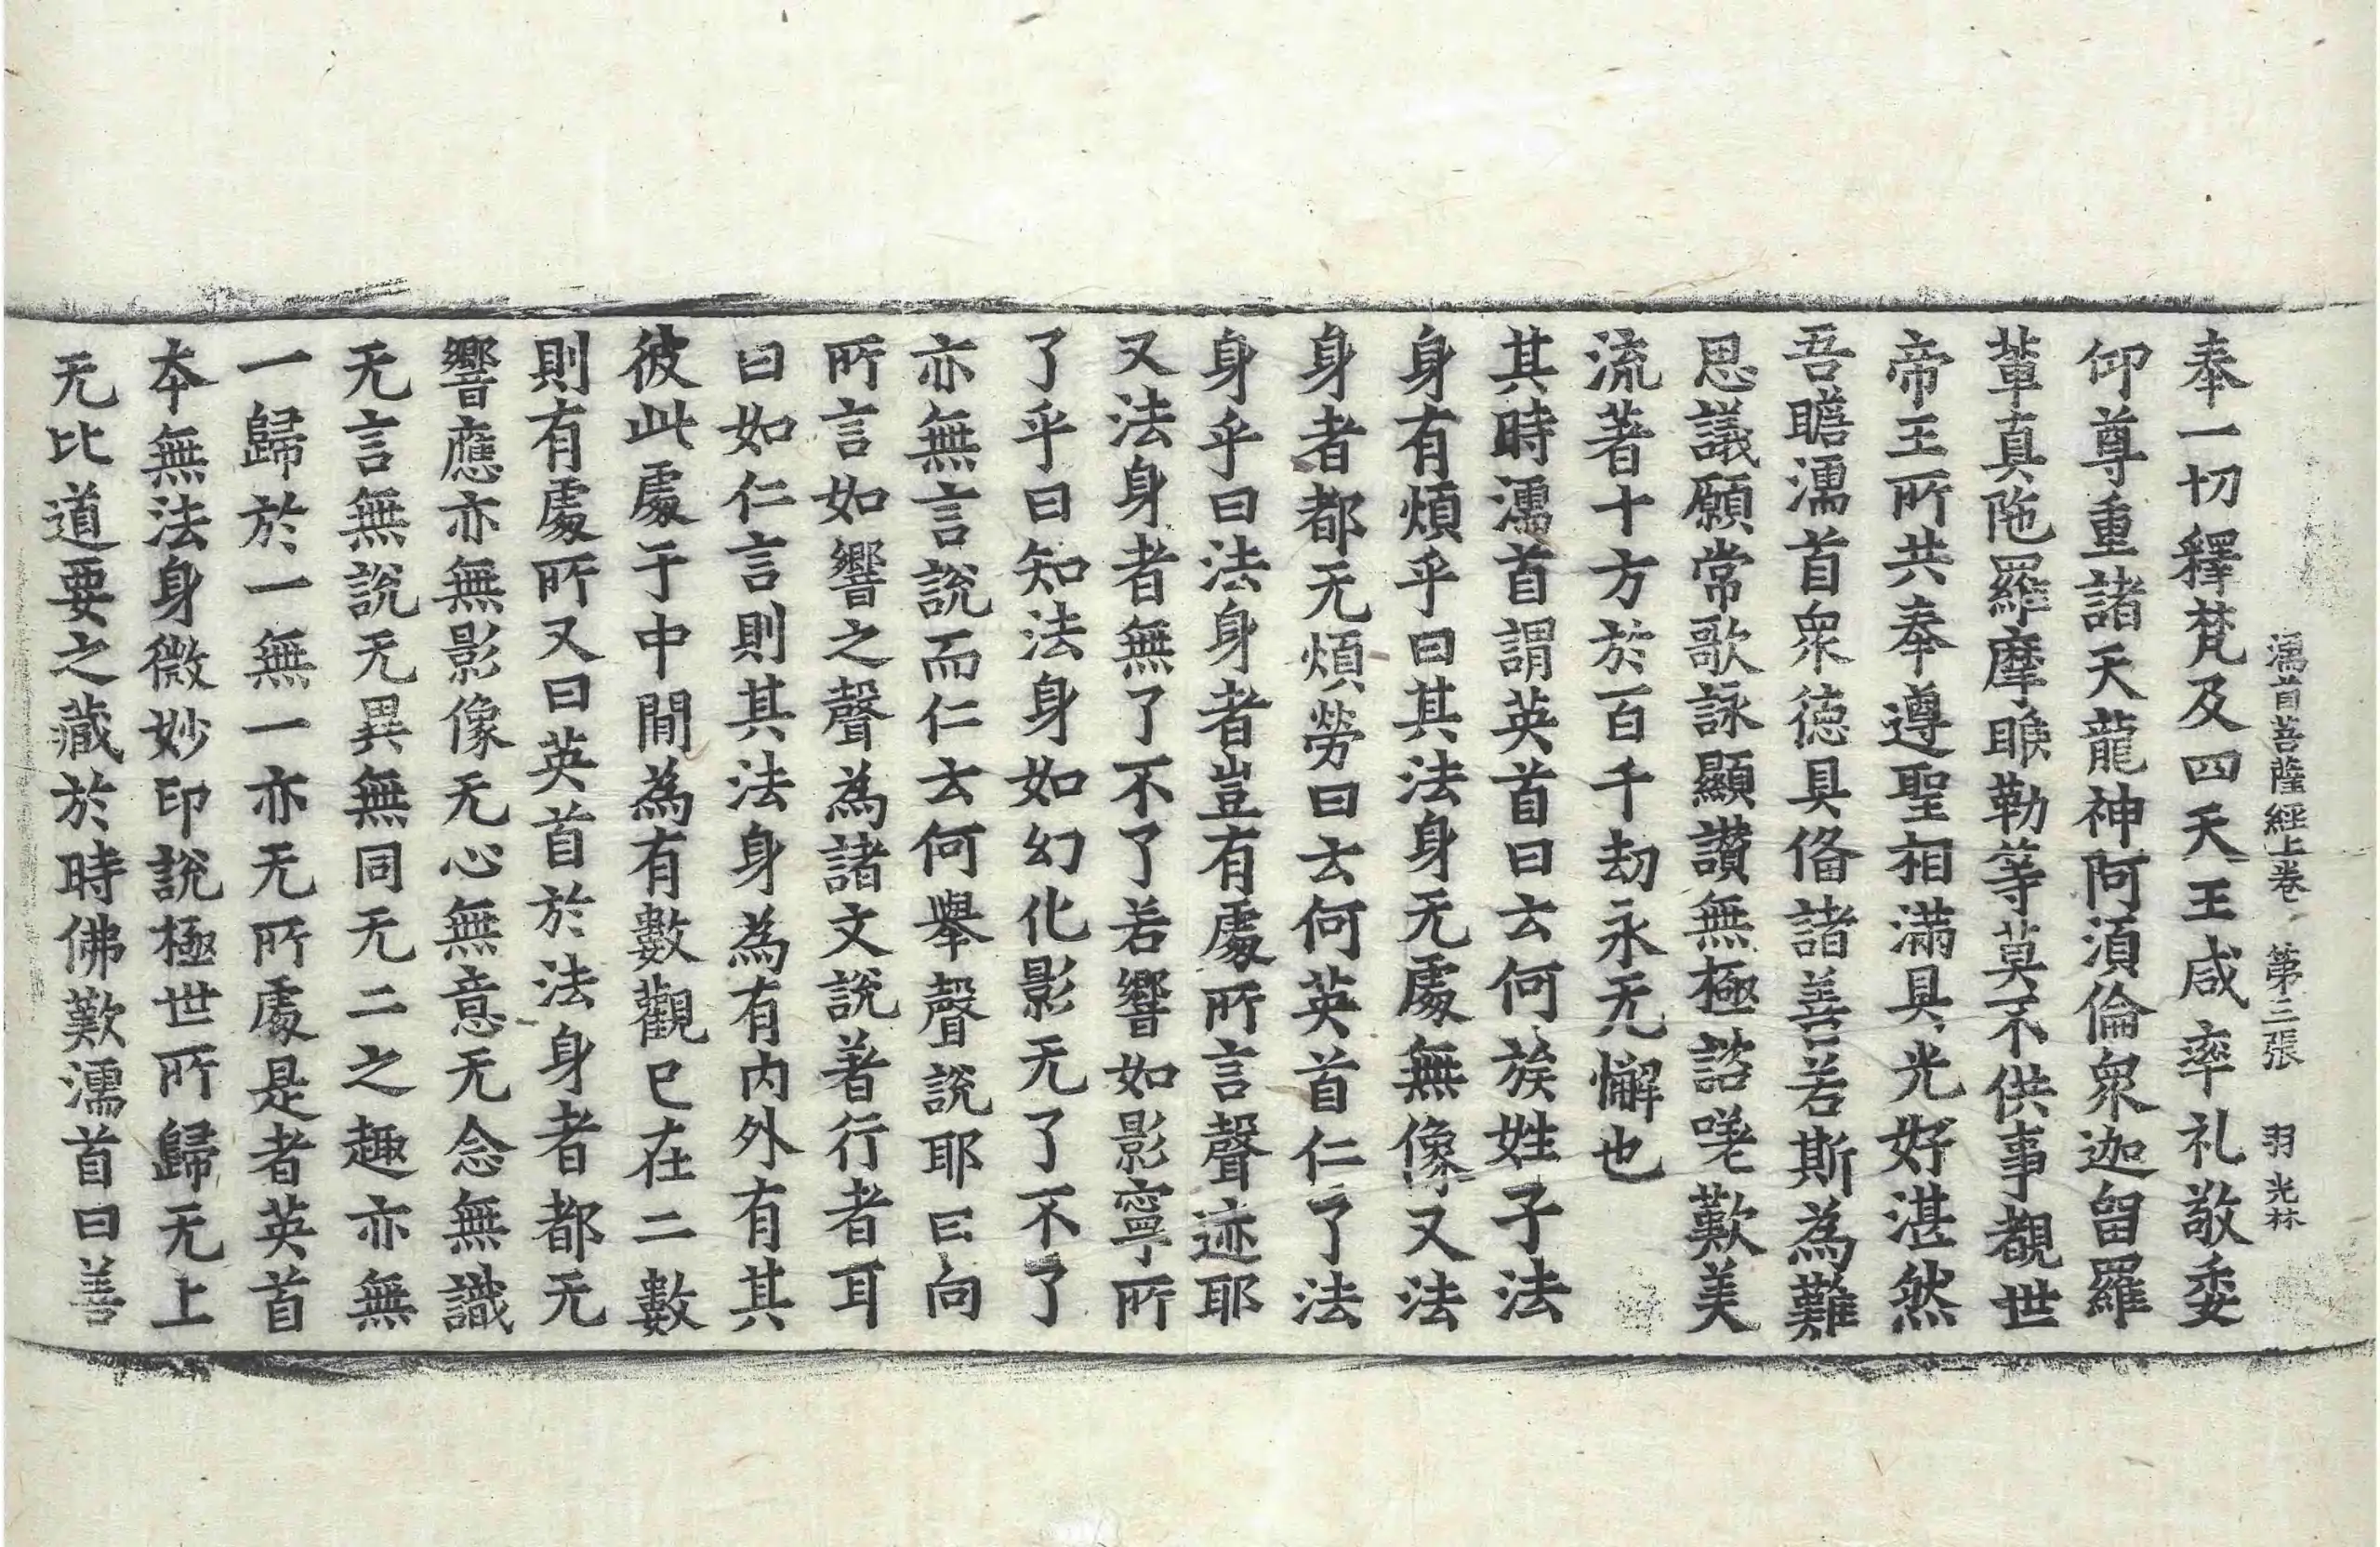 濡首菩薩經上卷 第三張 羽 光林
奉一切釋梵及四天王咸率礼敬委
仰尊重諸天龍神阿湏倫衆迦留羅
輩真陁羅摩睺勒等莫不供事觀世
帝王所共奉遵聖相滿具光好湛然
吾瞻濡首衆德具俻諸善若斯為難
思議願常歌詠顯讃無極諮嗟歎美
流著十方於百千劫永无懈也
其時濡首謂英首曰云何族姓子法
身有煩乎曰其法身无處無像又法
身者都无煩勞曰云何英首仁了法
身乎曰法身者豈有處所言聲迹耶
又法身者無了不了若響如影寧所
了乎曰知法身如幻化影无了不了
亦無言說而仁云何舉聲說耶曰向
所言如響之聲為諸文說著行者耳
曰如仁言則其法身為有内外有其
彼此處于中間為有數觀已在二數
則有處所又曰英首於法身者都无
響應亦無影像无心無意无念無識
无言無說无異無同无二之趣亦無
一歸於一無一亦无所處是者英首
本無法身微妙印說極世所歸无上
无比道要之藏於時佛歎濡首曰善